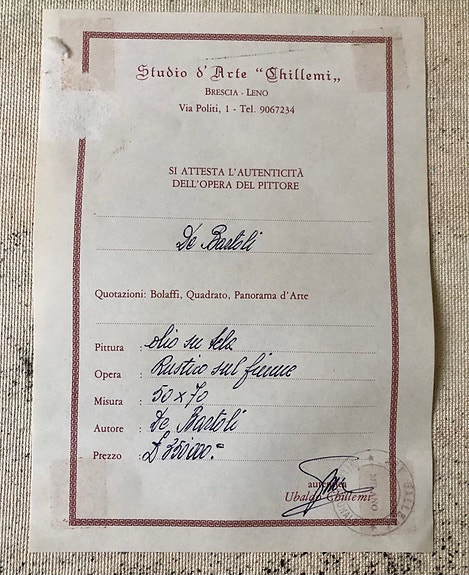 Studio d'Arte "Chillemi„
BRESCIA - LENO
Via Politi, 1 - Tel. 9067234
SI ATTESTA L'AUTENTICITÀ
DELL'OPERA DEL PITTORE
De Bartoli
Quotazioni: Bolaffi, Quadrato, Panorama d'Arte
Pittura : olio su tela
Opera : Rustico sul fiume
Misura : 50 x 70
Autore : De Bartoli
Prezzo : £ 350.000.=
autentica
Ubaldo Chillemi